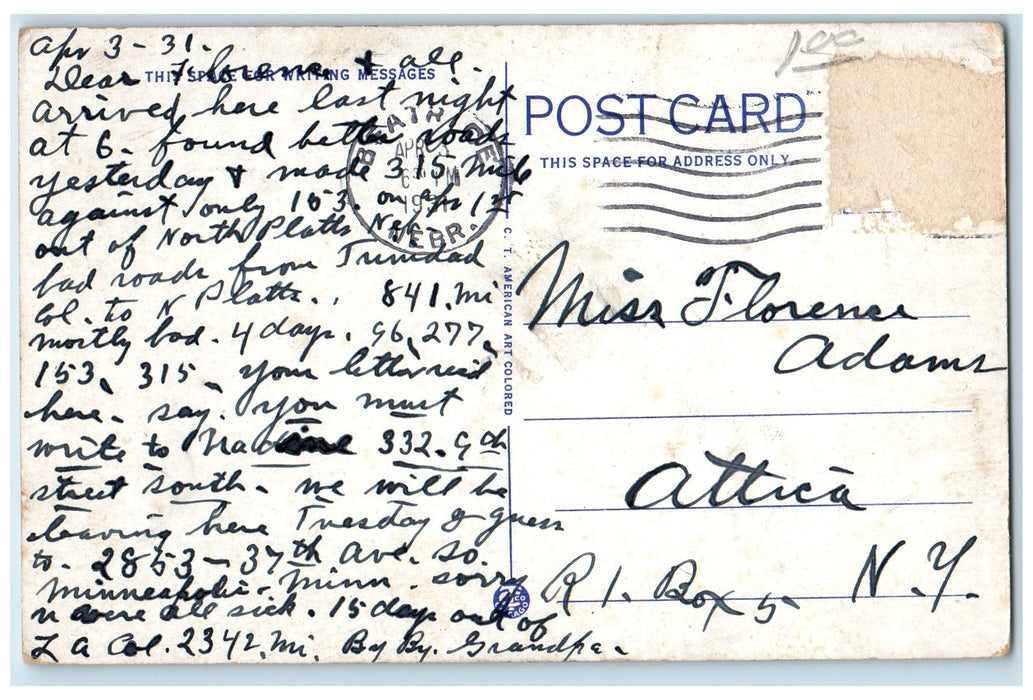 Apr 3-31.
Dear Florence & all.
THIS SPACE FOR WRITING MESSAGES
arrived here last night
at 6. found better roads
yesterday & made 315 mile
against only 153. on
out of North Platte Neb.
bad roads from Trinidad
Col. to N Platte., 841. mi
mostly bad. 4 days. 96, 277,
153, 315, your letter
here. say. you must
write to Nadine 332. 9th
street south. we will be
leaving here Tuesday I guess
to. 2853-37th Ave. So.
Minneapolis. Minn. sorry
u were all sick. 15 days out of
L A Cal. 2342. mi. By By. Grandpa.
APR
6 PM
1931
NEBR.
C. T. AMERICAN ART COLORED
100
POST CARD
THIS SPACE FOR ADDRESS ONLY
Miss Florence
Adams
Attica
R 1. Box 5 N.Y.